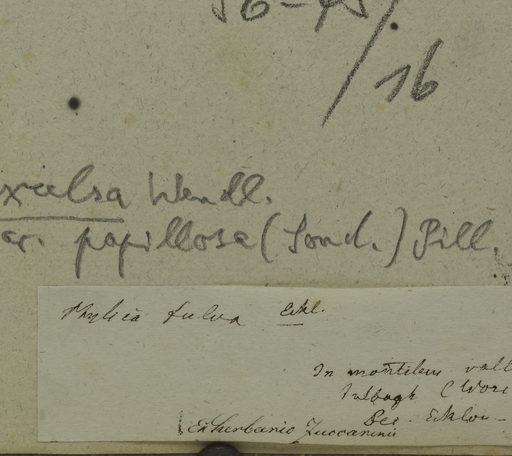 /16
xcelsa Wendl.
ar. papillosa (Sond.) Pill.
Phylica fulva Eckl.
In montibus
Tulbagh (Wor
Ecklon
Ex herbario Zuccarinii